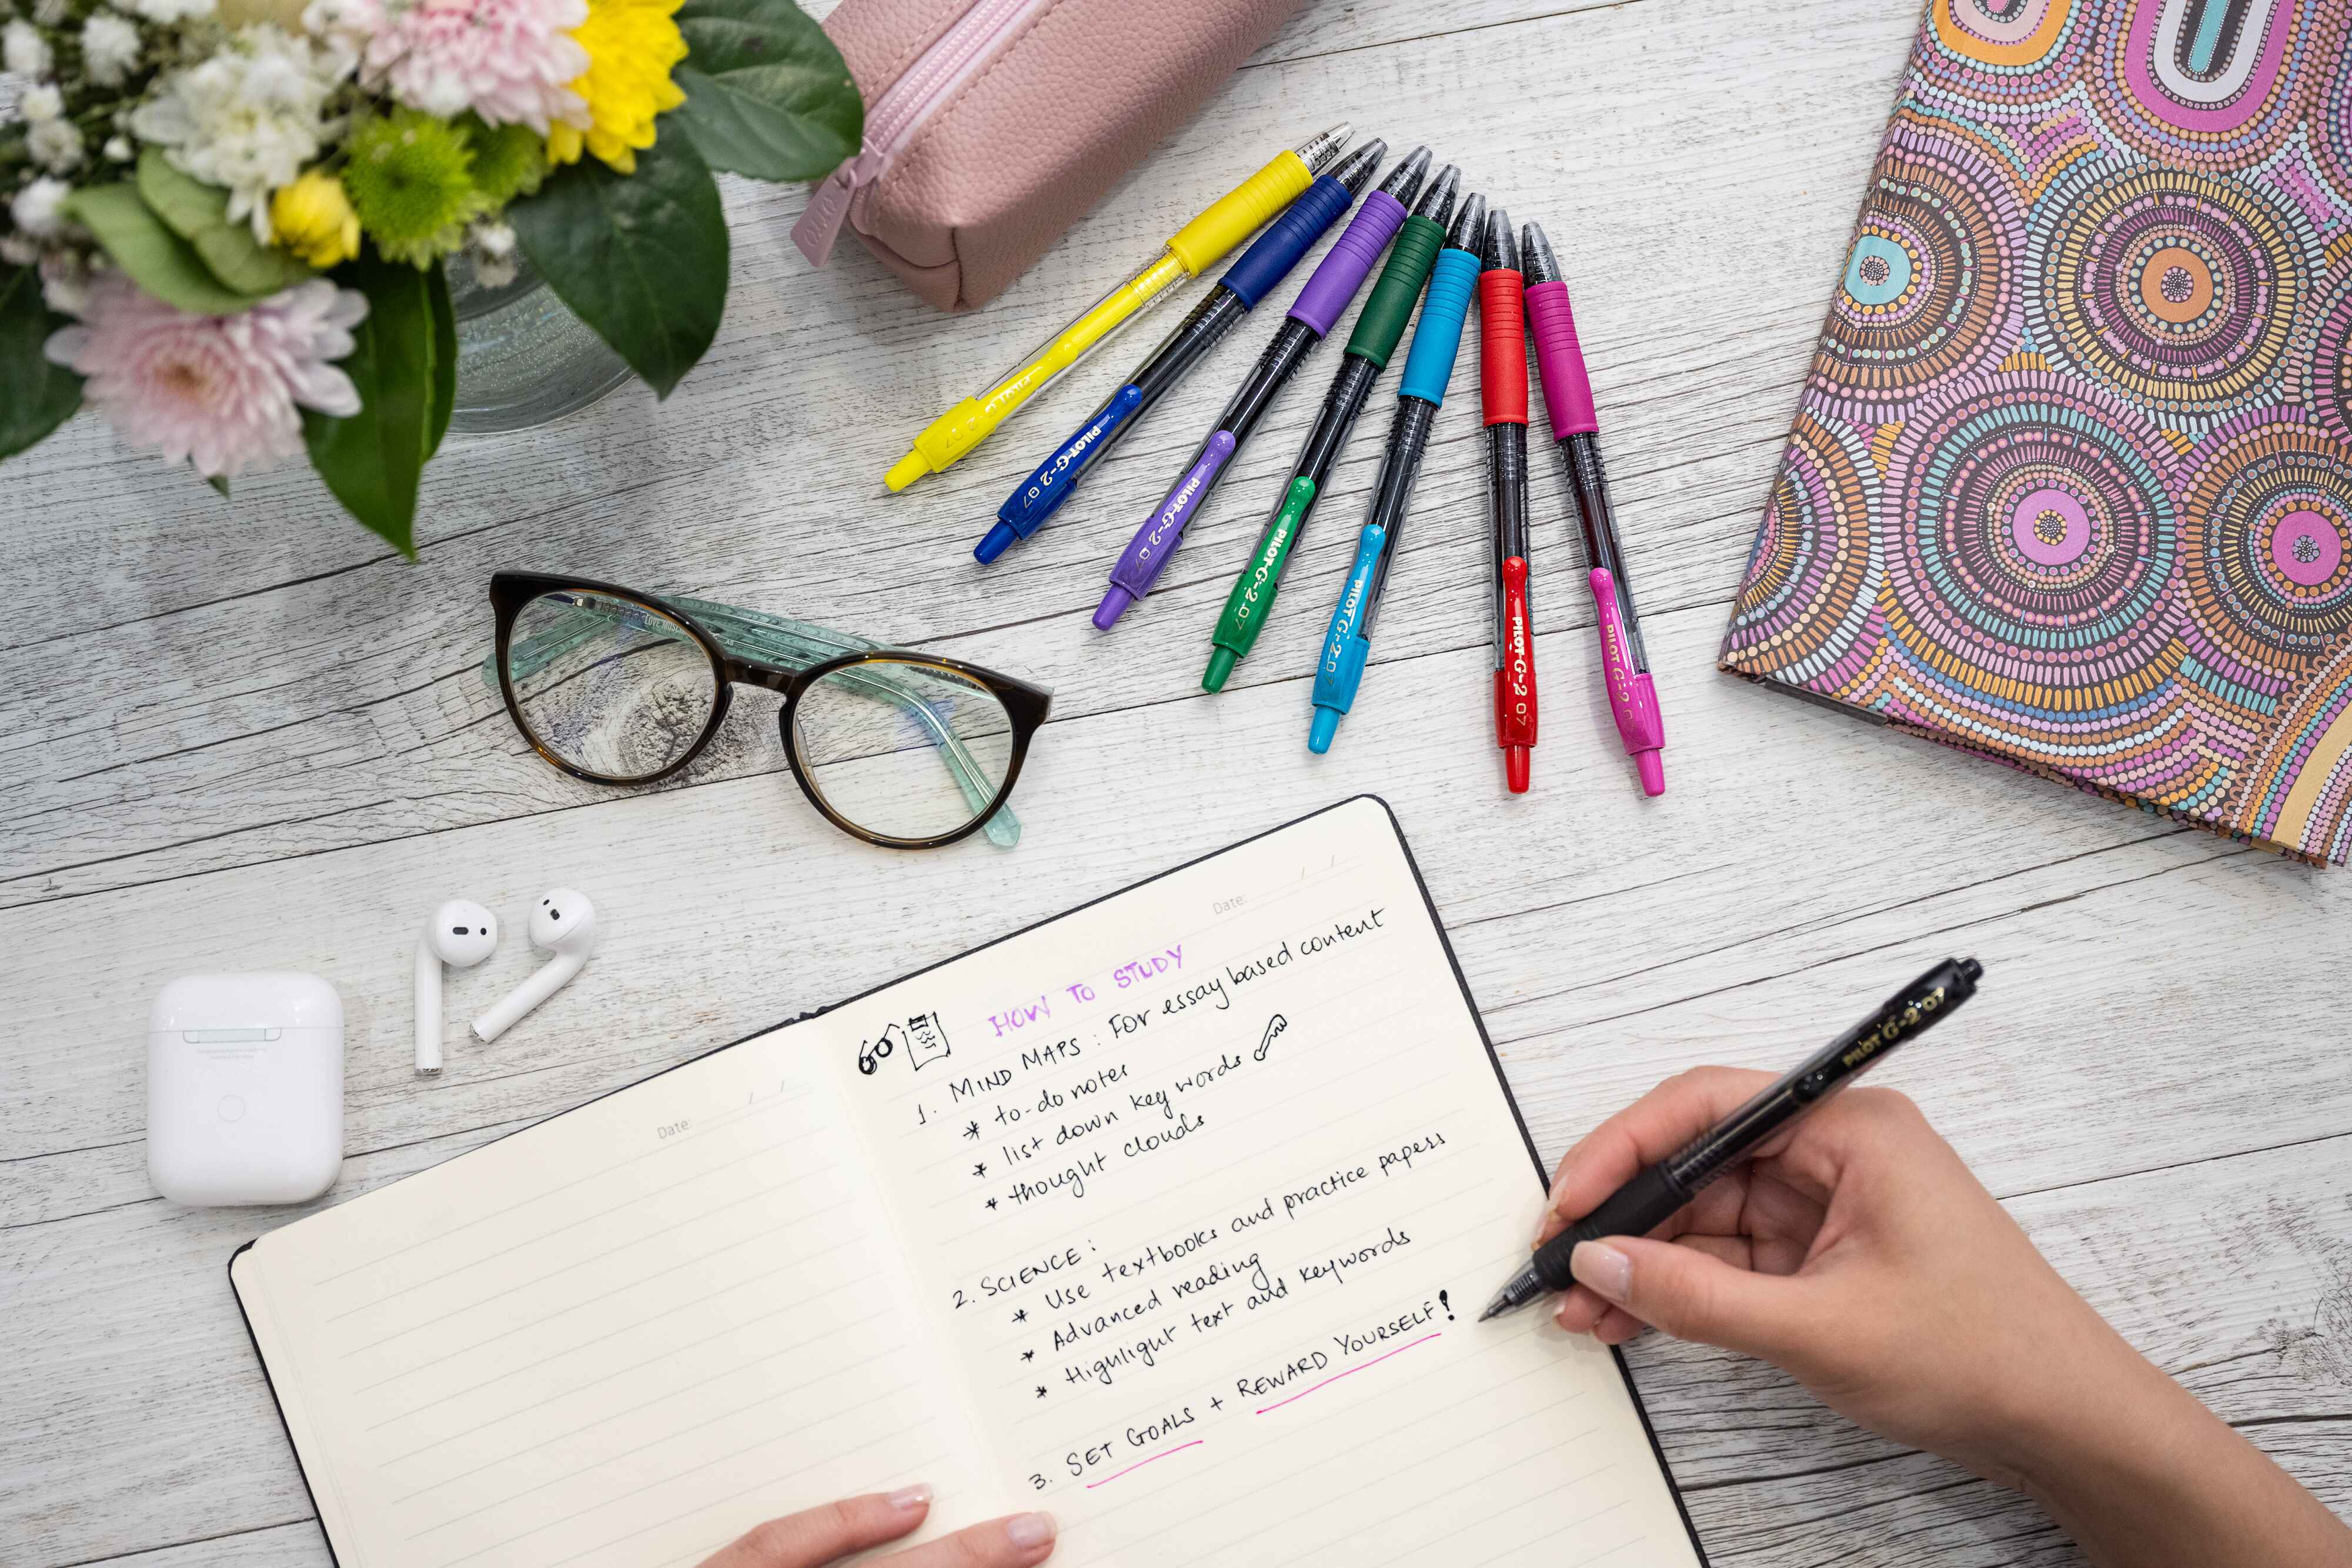 PILOT G-2 07
PILOT G-2 07
PILOT G-2 07
PILOT G-2 07
PILOT G-2 07
PILOT G-2 07
PILOT G-2 07
Date: / /
HOW TO STUDY
1. MIND MAPS : For essay based content
* to-do notes
* list down key words
* thought clouds
2. SCIENCE :
* Use textbooks and practice papers
* Advanced reading
* Highlight text and keywords
3. SET GOALS + REWARD YOURSELF!
Date: / /
PILOT G-2 07